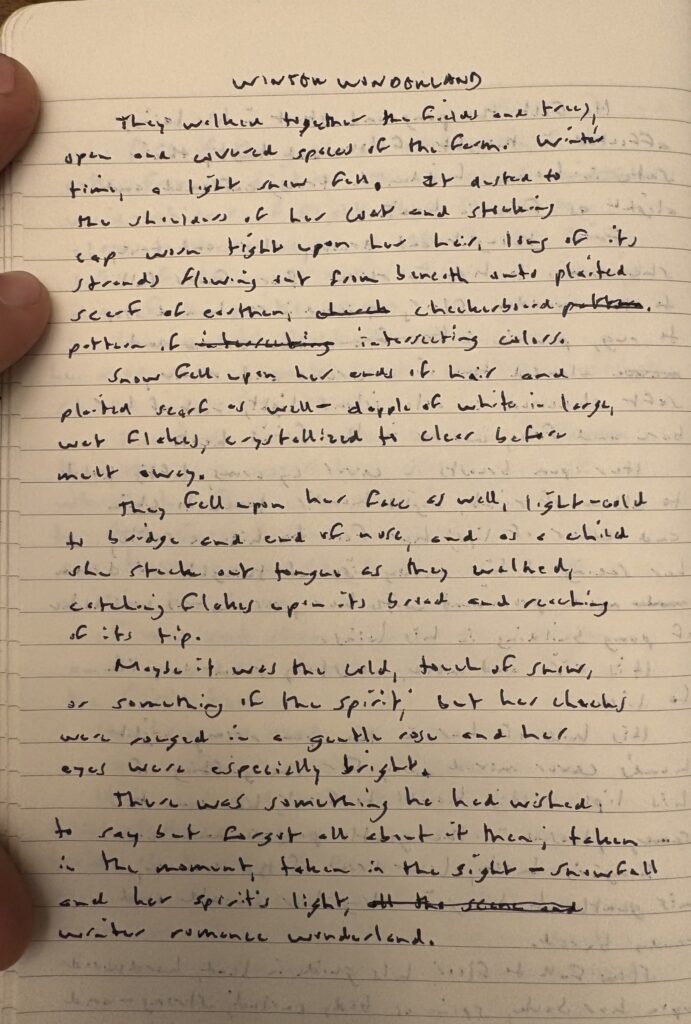 WINTER WONDERLAND
They walked together the fields and trees,
open and covered spaces of the farm. Winter
time, a light snow fell. It dusted to
the shoulders of her coat and stocking
cap worn tight upon her hair, long of its
strands flowing out from beneath onto plaited
scarf of earthen, check checkerboard pattern.
pattern of intersecting intersecting colors.
Snow fell upon her ends of hair and
plaited scarf as well - dapple of white in large,
wet flakes, crystallized to clear before
melt away.
They fell upon her face as well, light-cold
to bridge and end of nose, and as a child
she stuck out tongue as they walked,
catching flakes upon its broad and reaching
of its tip.
Maybe it was the cold, touch of snow,
or something of the spirit, but her cheeks
were rouged in a gentle rose and her
eyes were especially bright.
There was something he had wished
to say but forgot all about it then; taken
in the moment, taken in the sight - snowfall
and her spirit's light, all the scene and
winter romance wonderland.